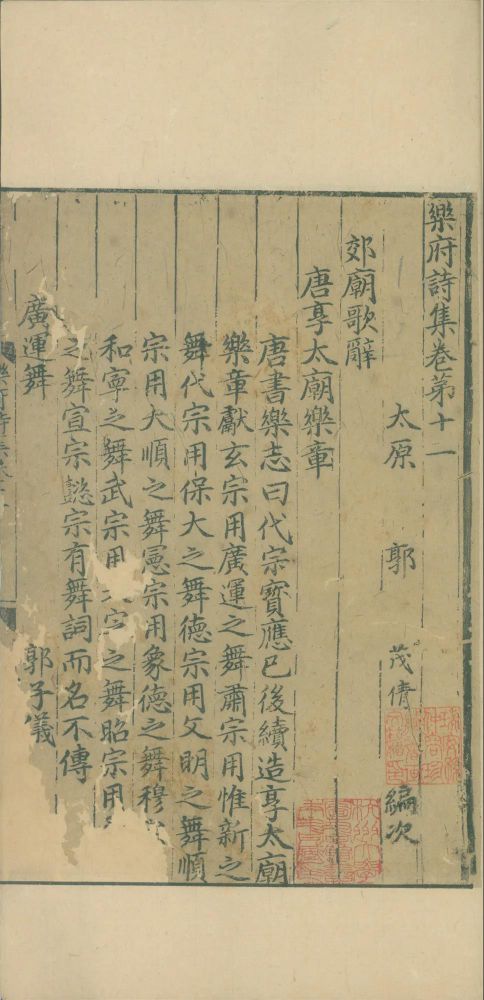 樂府詩集卷第十一
太原 郭 茂倩 編次
郊廟歌辭
唐享太廟樂章
唐書樂志曰代宗寶應已後續造享太廟
樂章獻玄宗用廣運之舞肅宗用惟新之
舞代宗用保大之舞德宗用文明之舞順
宗用大順之舞憲宗用象德之舞穆
和寧之舞武宗用之舞昭宗用
之舞宣宗懿宗有舞詞而名不傳
廣運舞 郭子儀